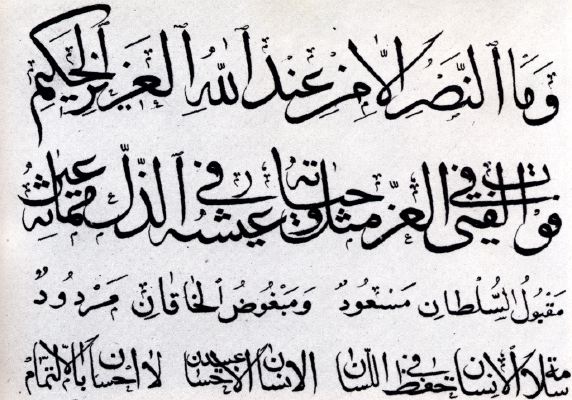 وَمَا النَّصْرُ اِلَّا مِنْ عِنْدِ اللّٰهِ الْعَزِيزِ الْحَكِيمِ
فوت الفتى في العزّ مثل حياته وعيشه في الذّل عين مماته
مَقْبُولُ السُّلْطَانِ مَسْعُودٌ وَمَبْغُوضُ الْخَاقَانِ مَرْدُودٌ
سلامة الانسان في حفظ اللسان الانسان عبيد الاحسان لا احسان الا بالاتمام